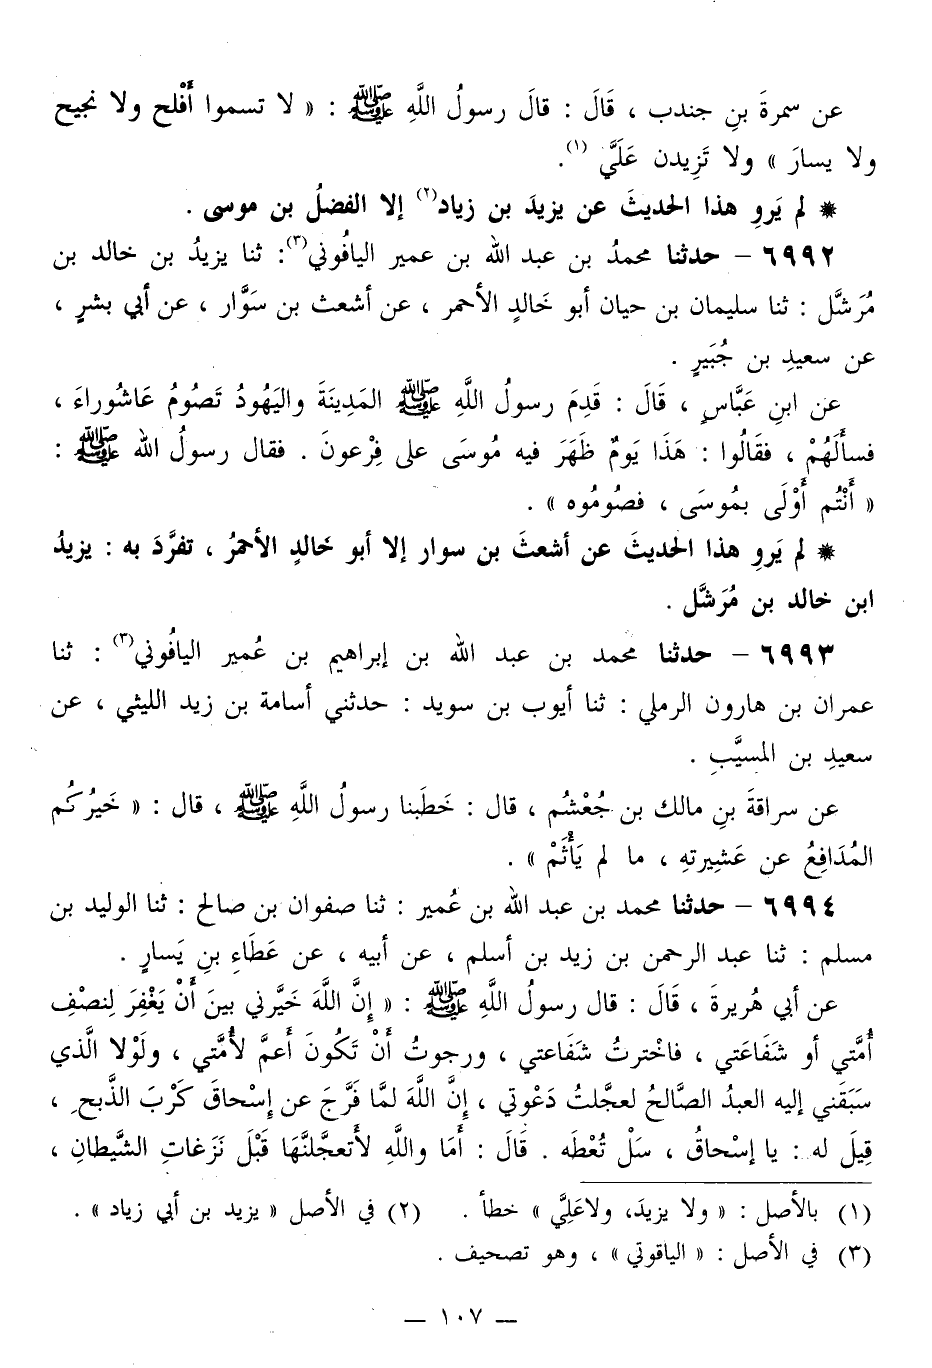 عن سمرةَ بنِ جندب ، قَالَ : قالَ رسولُ اللَّهِ ﷺ : « لا تسموا أَفْلح ولا نجيح
ولا يسارَ » ولا تَزِيدن عَلَيَّ (١).
* لم يَروِ هذا الحديثَ عن يزيدَ بن زياد(٢) إلا الفضلُ بن موسى .
٦٩٩٢ – حدثنا محمدُ بن عبد الله بن عمير اليافُوني(٣): ثنا يزيدُ بن خالد بن
مُرَشَّل : ثنا سليمان بن حيان أبو خَالدٍ الأحمر ، عن أشعث بن سَوَّار ، عن أبي بشرٍ ،
عن سعيدِ بن جُبَيرٍ .
عن ابنِ عَبَّاسٍ ، قَالَ : قَدِمَ رسولُ اللَّهِ ﷺ المَدِينَةَ واليَهُودُ تَصُومُ عَاشُوراءَ ،
فسأَلَهُمْ ، فقَالُوا : هَذَا يَومٌ ظَهَرَ فيه مُوسَى على فِرْعونَ . فقال رسولُ الله ﷺ :
« أَنْتُم أَوْلَى بمُوسَى ، فصُومُوه » .
* لم يَروِ هذا الحديثَ عن أشعثَ بن سوار إلا أبو خَالدٍ الأحمرُ ، تفرَّدَ به : يزيدُ
ابن خالد بن مُرَشَّل .
٦٩٩٣ – حدثنا محمد بن عبد الله بن إبراهيم بن عُمير اليافُوني(٣) : ثنا
عمران بن هارون الرملي : ثنا أيوب بن سويد : حدثني أسامة بن زيد الليثي ، عن
سعيدِ بن المسيَّبِ .
عن سراقةَ بنِ مالك بن جُعْشُم ، قال : خَطَبنا رسولُ اللَّهِ ﷺ ، قال : « خَيرُكُم
المُدَافِعُ عن عَشِيرتهِ ، ما لم يَأْثَمْ » .
٦٩٩٤ – حدثنا محمد بن عبد الله بن عُمير : ثنا صفوان بن صالح : ثنا الوليد بن
مسلم : ثنا عبد الرحمن بن زيد بن أسلم ، عن أبيه ، عن عَطَاءِ بنِ يَسارٍ .
عن أبي هُريرةَ ، قَالَ : قال رسولُ اللَّهِ ﷺ : « إِنَّ اللَّهَ خَيَّرني بينَ أَنْ يَغْفِرَ لِنصْفِ
أُمَّتي أو شَفَاعَتي ، فاخْترتُ شفَاعتي ، ورجوتُ أَنْ تَكُونَ أَعمَّ لأُمَّتي ، ولَوْلا الَّذي
سَبَقَني إليه العبدُ الصَّالحُ لعجَّلتُ دَعْوتي ، إِنَّ اللَّهَ لمَّا فَرَّجَ عن إِسْحاقَ كَرْبَ الذَّبحِ ،
قِيلَ له : يا إسْحاقُ ، سَلْ تُعْطَه . قَالَ : أَمَا واللَّهِ لأَتعجَّلنَّهَا قَبْلَ نَزَغاتِ الشَّيطانِ ،
(١) بالأصل : « ولا يزيدَ، ولاعَلِيَّ » خطأ . (٢) في الأصل « يزيد بن أبي زياد » .
(٣) في الأصل : « الياقوتي » ، وهو تصحيف .
– ١٠٧ –